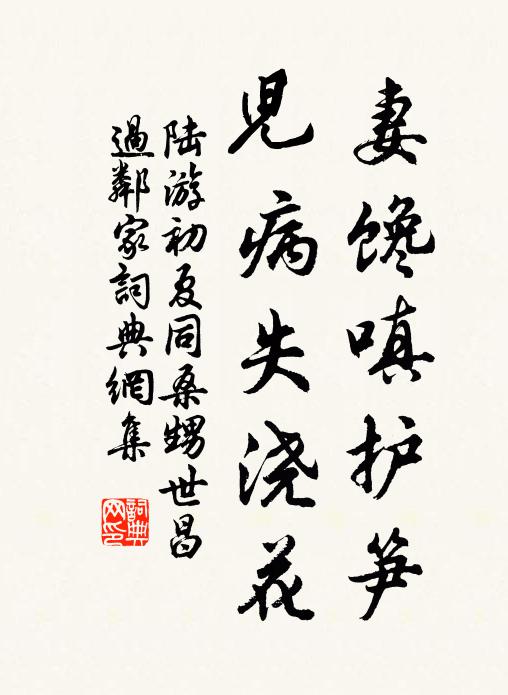 妻馋嗔护笋
児病失浇花
陆游初夏同桑甥世昌
過鄰家詞典網集
詞典
网印